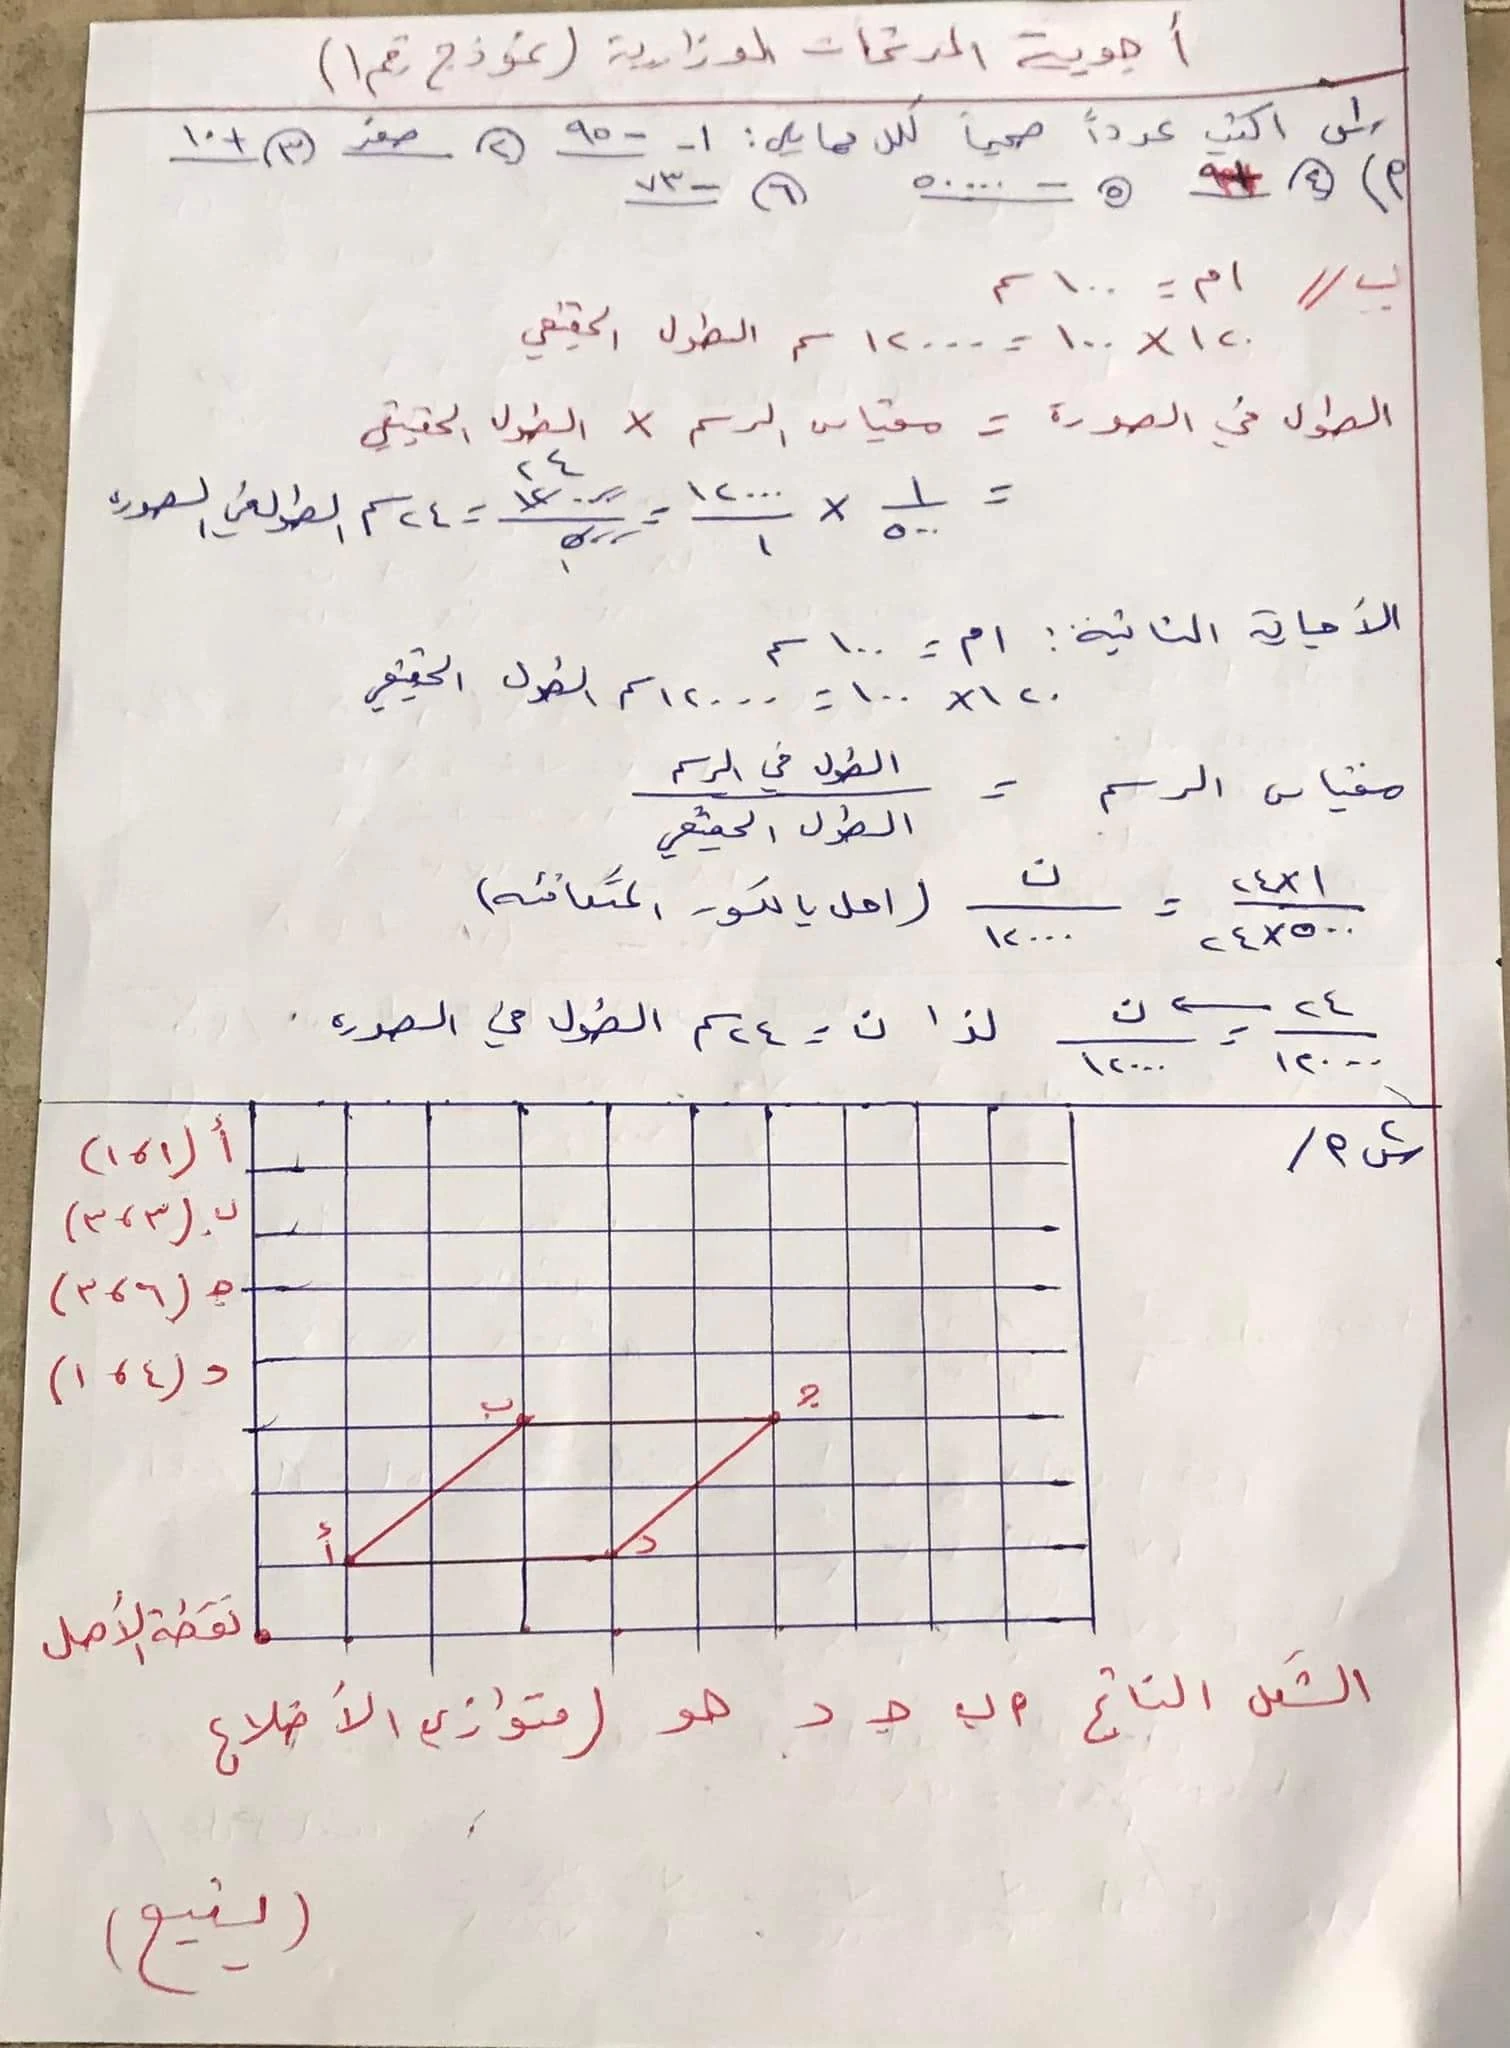 أجوبة المرشحات الوزارية (نموذج رقم ١)
س١ اكتب عدداً صحيحاً لكل مما يلي: ١- -٩٥ ٢) صفر ٣) +١٠
أ) ٤) ٥) -٥٠٠٠٠ ٦) -٧٣
ب// ١م = ١٠٠ سم
١٢٠ × ١٠٠ = ١٢٠٠٠ سم الطول الحقيقي
الطول في الصورة = مقياس الرسم × الطول الحقيقي
= ١/٥٠٠ × ١٢٠٠٠/١ = ١٢٠٠٠/٥٠٠ = ٢٤ سم الطول في الصورة
الأجابة الثانية: ١م = ١٠٠ سم
١٢٠ × ١٠٠ = ١٢٠٠٠ سم الطول الحقيقي
مقياس الرسم = الطول في الرسم / الطول الحقيقي
١×٢٤ / ٥٠٠×٢٤ = ن / ١٢٠٠٠ (احل بالكسور المتكافئة)
٢٤/١٢٠٠٠ = ن/١٢٠٠٠ لذا ن = ٢٤ سم الطول في الصورة
س٢ أ/
أ (١، ١)
ب (٣، ٣)
جـ (٦، ٣)
د (٤، ١)
ب جـ
أ د
نقطة الأصل
الشكل الناتج أ ب جـ د هو (متوازي الأضلاع
(يتبع)